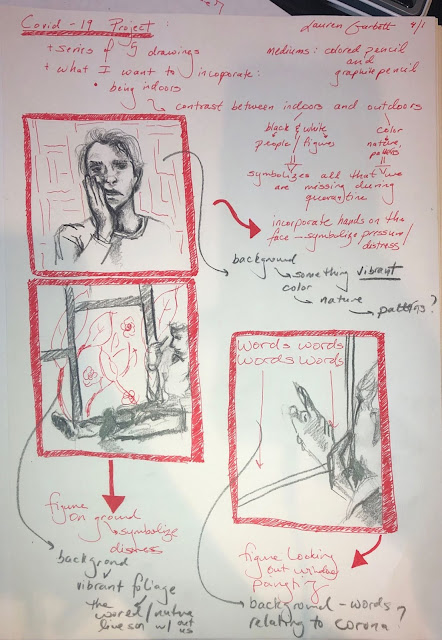 Covid-19 Project:
Lauren Garbett 4/1
+ series of 5 drawings
+ what I want to incoporate:
• being indoors
mediums: colored pencil
and
graphite pencil
contrast between indoors and outdoors
black & white
people/figures
color
nature,
patterns
symbolizes all that we
are missing during
quarantine
incorporate hands on the
face - symbolize pressure/
distress
background
something vibrant
color
nature
patterns?
words words
words words
figure
on ground
symbolize
distress
background
vibrant foliage
the
world/nature
lives on w/out
us
figure looking
out window
pointing
background - words?
relating to corona